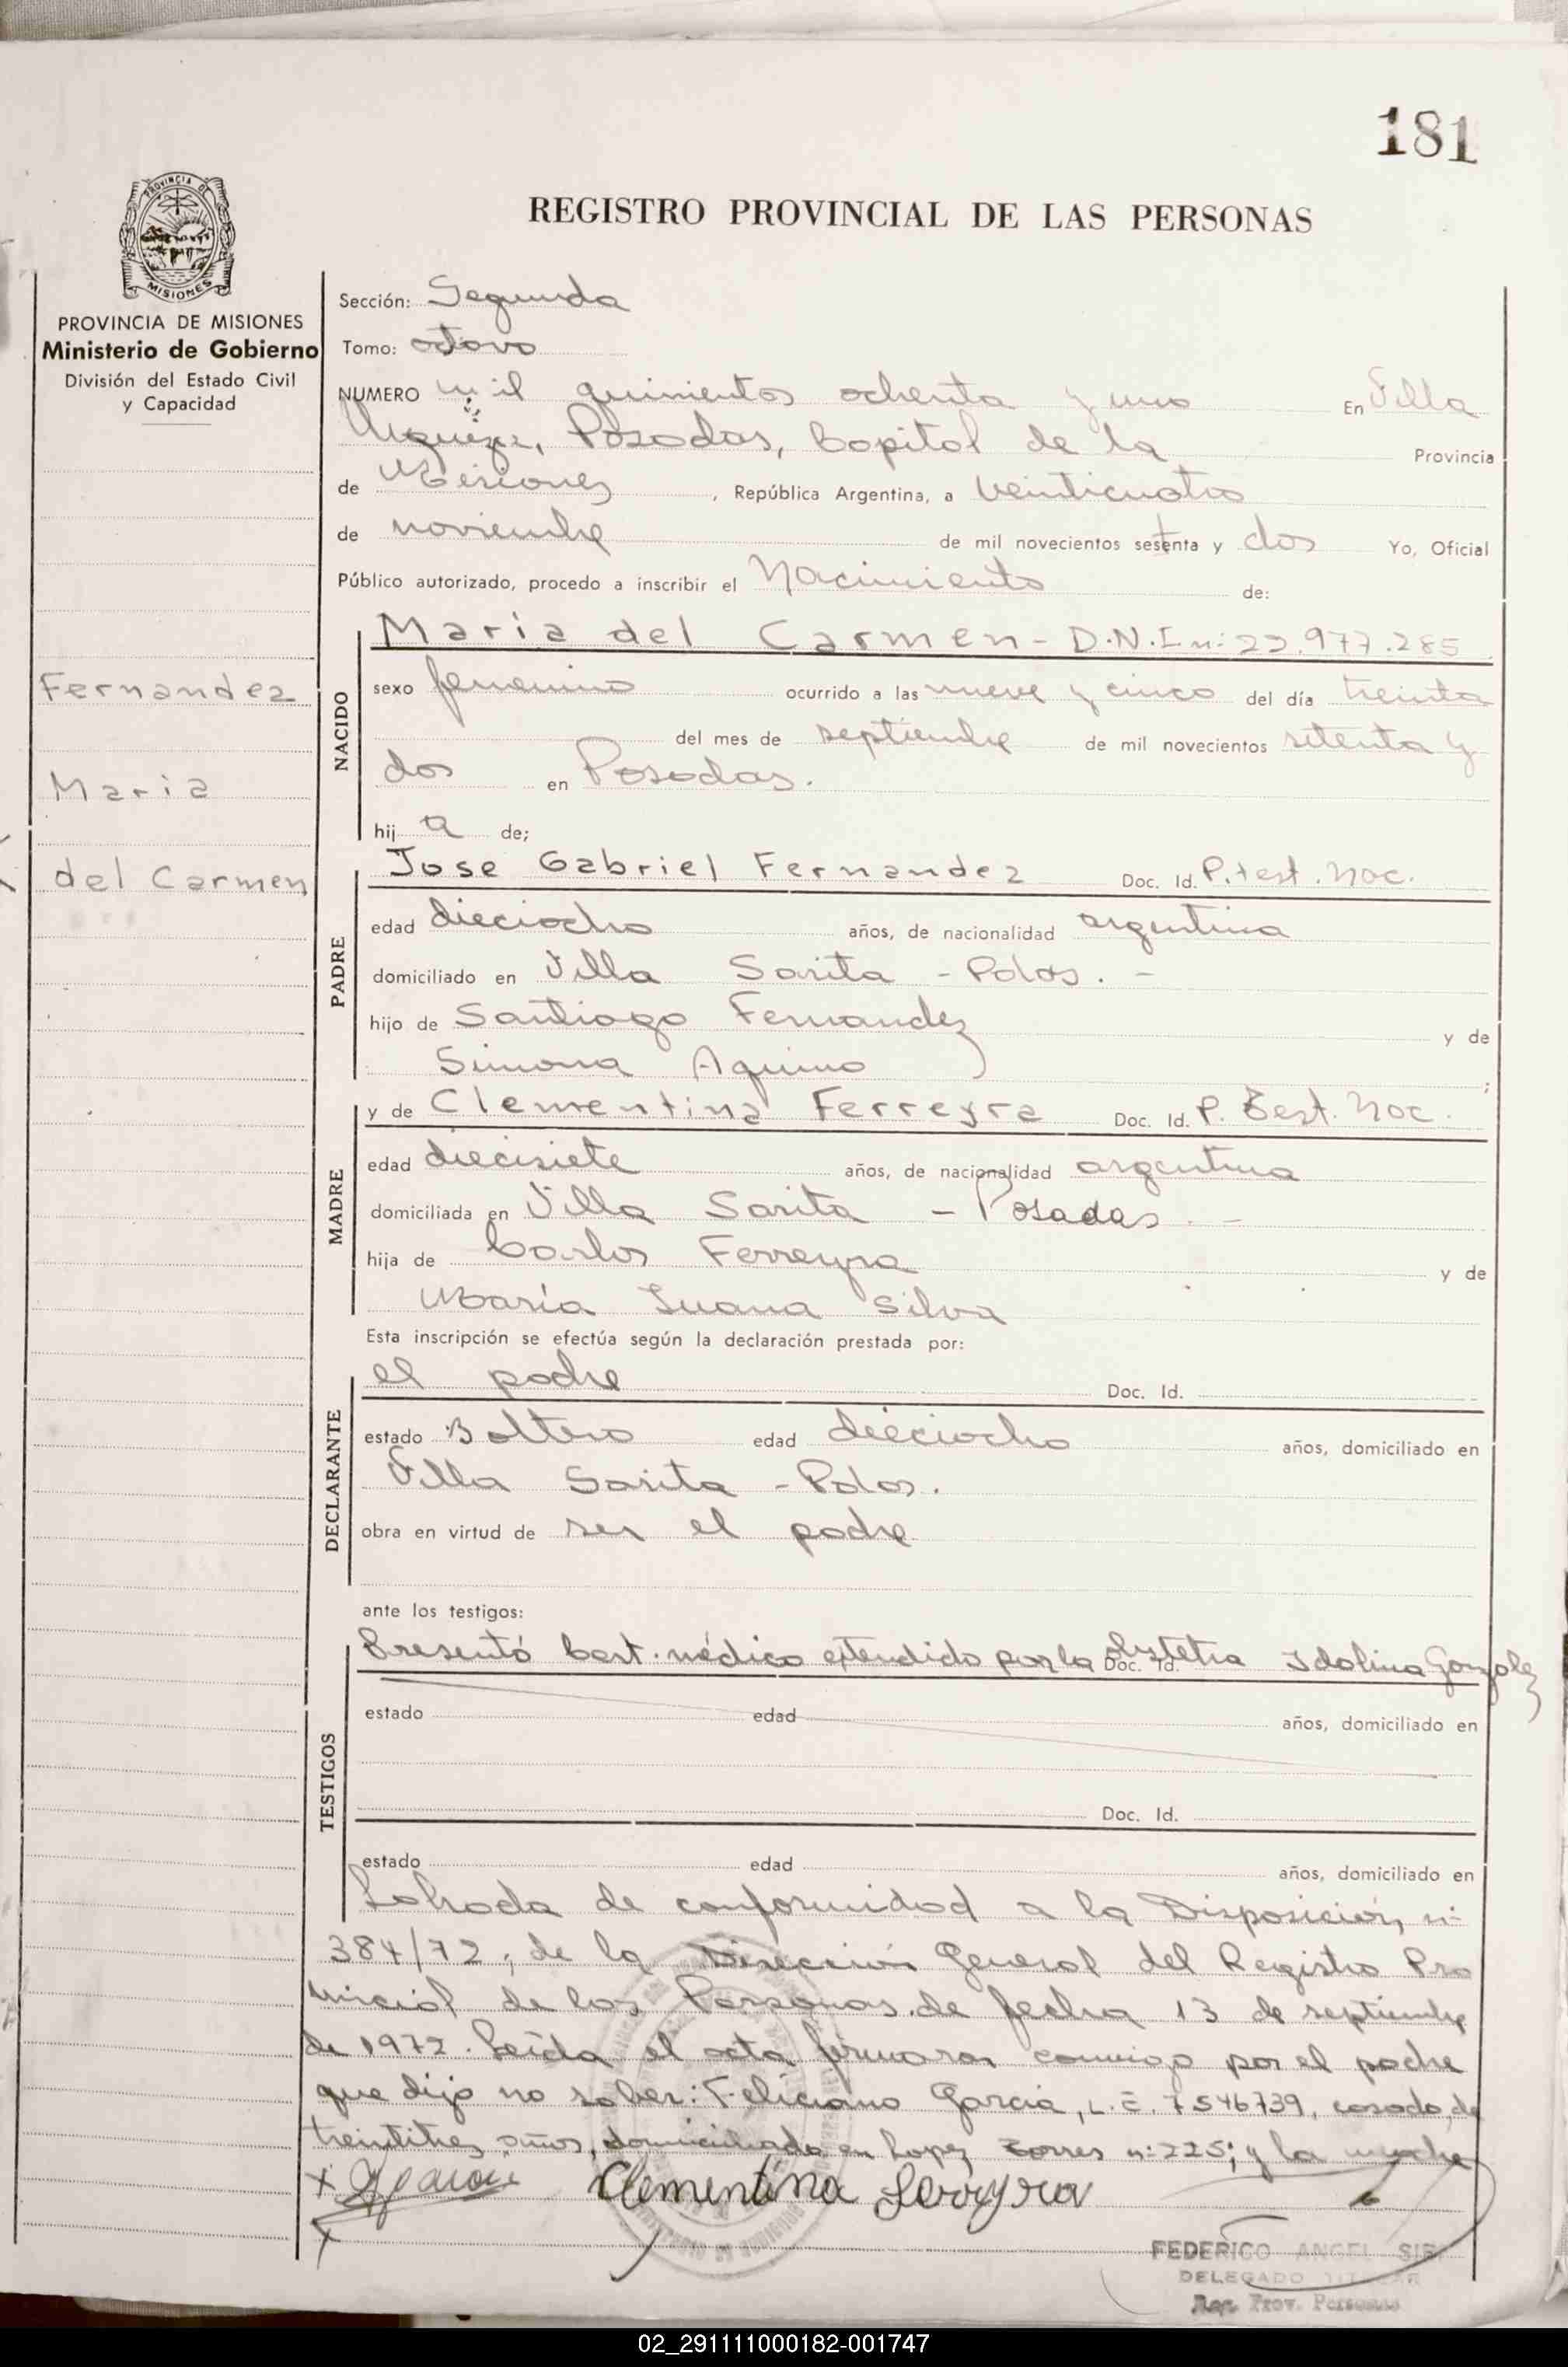 181
REGISTRO PROVINCIAL DE LAS PERSONAS
PROVINCIA DE
MISIONES
PROVINCIA DE MISIONES
Ministerio de Gobierno
División del Estado Civil
y Capacidad
Fernandez
Maria
del Carmen
Sección: Segunda
Tomo: octavo
NUMERO mil quinientos ochenta y uno En Villa
Urquiza, Posadas, Capital de la Provincia
de Misiones, República Argentina, a veinticuatro
de noviembre de mil novecientos setenta y dos Yo, Oficial
Público autorizado, procedo a inscribir el Nacimiento de:
NACIDO
Maria del Carmen - D.N.I. n: 22.977.285
sexo femenino ocurrido a las nueve y cinco del día treinta
del mes de septiembre de mil novecientos setenta y
dos en Posadas.
hij a de;
PADRE
Jose Gabriel Fernandez Doc. Id. P. test. Noc.
edad dieciocho años, de nacionalidad argentina
domiciliado en Villa Sarita - Pdas. -
hijo de Santiago Fernandez y de
Simona Aquino ;
MADRE
y de Clementina Ferreyra Doc. Id. P. Test. Noc.
edad diecisiete años, de nacionalidad argentina
domiciliada en Villa Sarita - Posadas. -
hija de Carlos Ferreyra y de
María Juana Silva
Esta inscripción se efectúa según la declaración prestada por:
DECLARANTE
el padre Doc. Id.
estado Soltero edad dieciocho años, domiciliado en
Villa Sarita - Pdas.
obra en virtud de ser el padre
ante los testigos:
TESTIGOS
Presentó Cert. médico extendido por la obstetra Idolina Gonzalez Doc. Id.
estado edad años, domiciliado en
Doc. Id.
estado edad años, domiciliado en
Labrada de conformidad a la Disposición, n:
384/72, de la Dirección General del Registro Pro
vincial de las Personas. de fecha 13 de septiembre
de 1972. Leída el acta firmaron conmigo por el padre
que dijo no saber: Feliciano Garcia, L.E. 7546739, casado, de
treintitres años, domiciliado en Lopez Torres n: 225; y la madre
Clementina Ferreyra
FEDERICO ANGEL
DELEGADO TITULAR
Reg. Prov. Personas
02_291111000182-001747